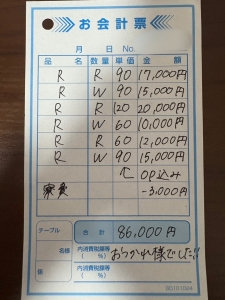 お会計票
月 日 No.
品名 数量 単価 金額
R R 90 17,000円
R W 90 15,000円
R R 120 20,000円
R W 60 10,000円
R R 60 12,000円
R W 90 15,000円
↑ OP込み
家賃 -3,000円
テーブル 合計 86,000円
名様 内消費税額等( %) おつかれ様でした!!
係 内消費税額等( %)